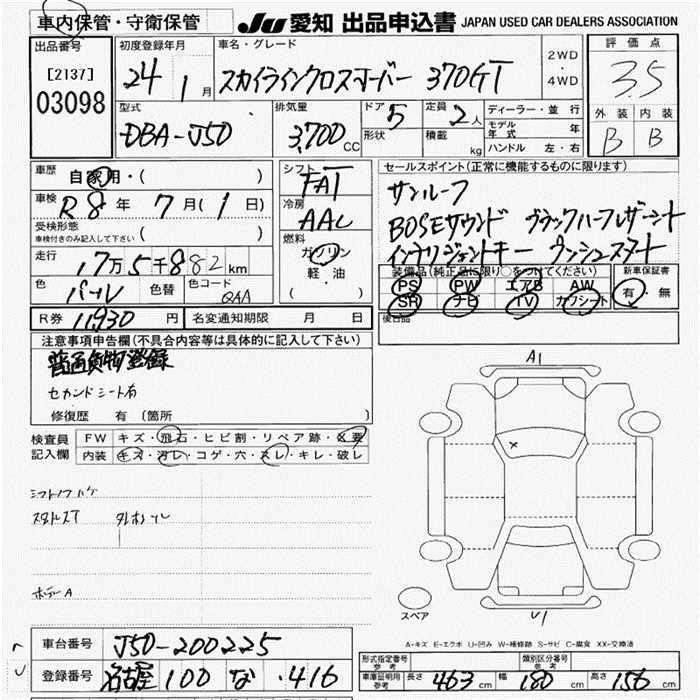 車内保管・守衛保管 JU 愛知 出品申込書 JAPAN USED CAR DEALERS ASSOCIATION
出品番号 初度登録年月 車名・グレード 評価点
[2137] 24 1月 スカイラインクロスオーバー 370GT 2WD・4WD 3.5
03098 型式 排気量 ドア 5 定員 2人 ディーラー・並行 外装 内装
DBA-J50 3,700CC 形状 積載 kg モデル年式 年 B B
ハンドル 左・右
車歴 自家用・( ) シフト FAT セールスポイント(正常に機能するものに限ります)
車検 R8年 7月(1日) 冷房 AAC サンルーフ
受検形態 BOSEサウンド ブラックハーフレザーシート
車検付きのみ記入して下さい ( ) 燃料 ガソリン インテリジェントキー プッシュスタート
走行 17万5千882km 軽・油 装備品(純正品に限り○をつけてください) 新車保証書
色 パール 色替 色コード QAA ( ) PS PW エアB AW 有・無
SR ナビ TV カワシート
R券 11930円 名変通知期限 月 日 後日品
注意事項申告欄(不具合内容等は具体的に記入して下さい)
普通貨物登録
セカンドシート有
修復歴 有 〔箇所 〕
A1
検査員 FW キズ・飛石・ヒビ割・リペア跡・X要
記入欄 内装 キズ・汚レ・コゲ・穴・スレ・キレ・破レ
×
シフトノブハゲ
ボデーA
スペア
U1
A-キズ E-エクボ U-凹み W-補修跡 S-サビ C-腐食 XX-交換済
車台番号 J50-200225
登録番号 名古屋 100 な ・416
形式指定番号 参考 類別区分番号 参考
車庫証明用 参考 長さ 463cm 幅 180cm 高さ 156cm